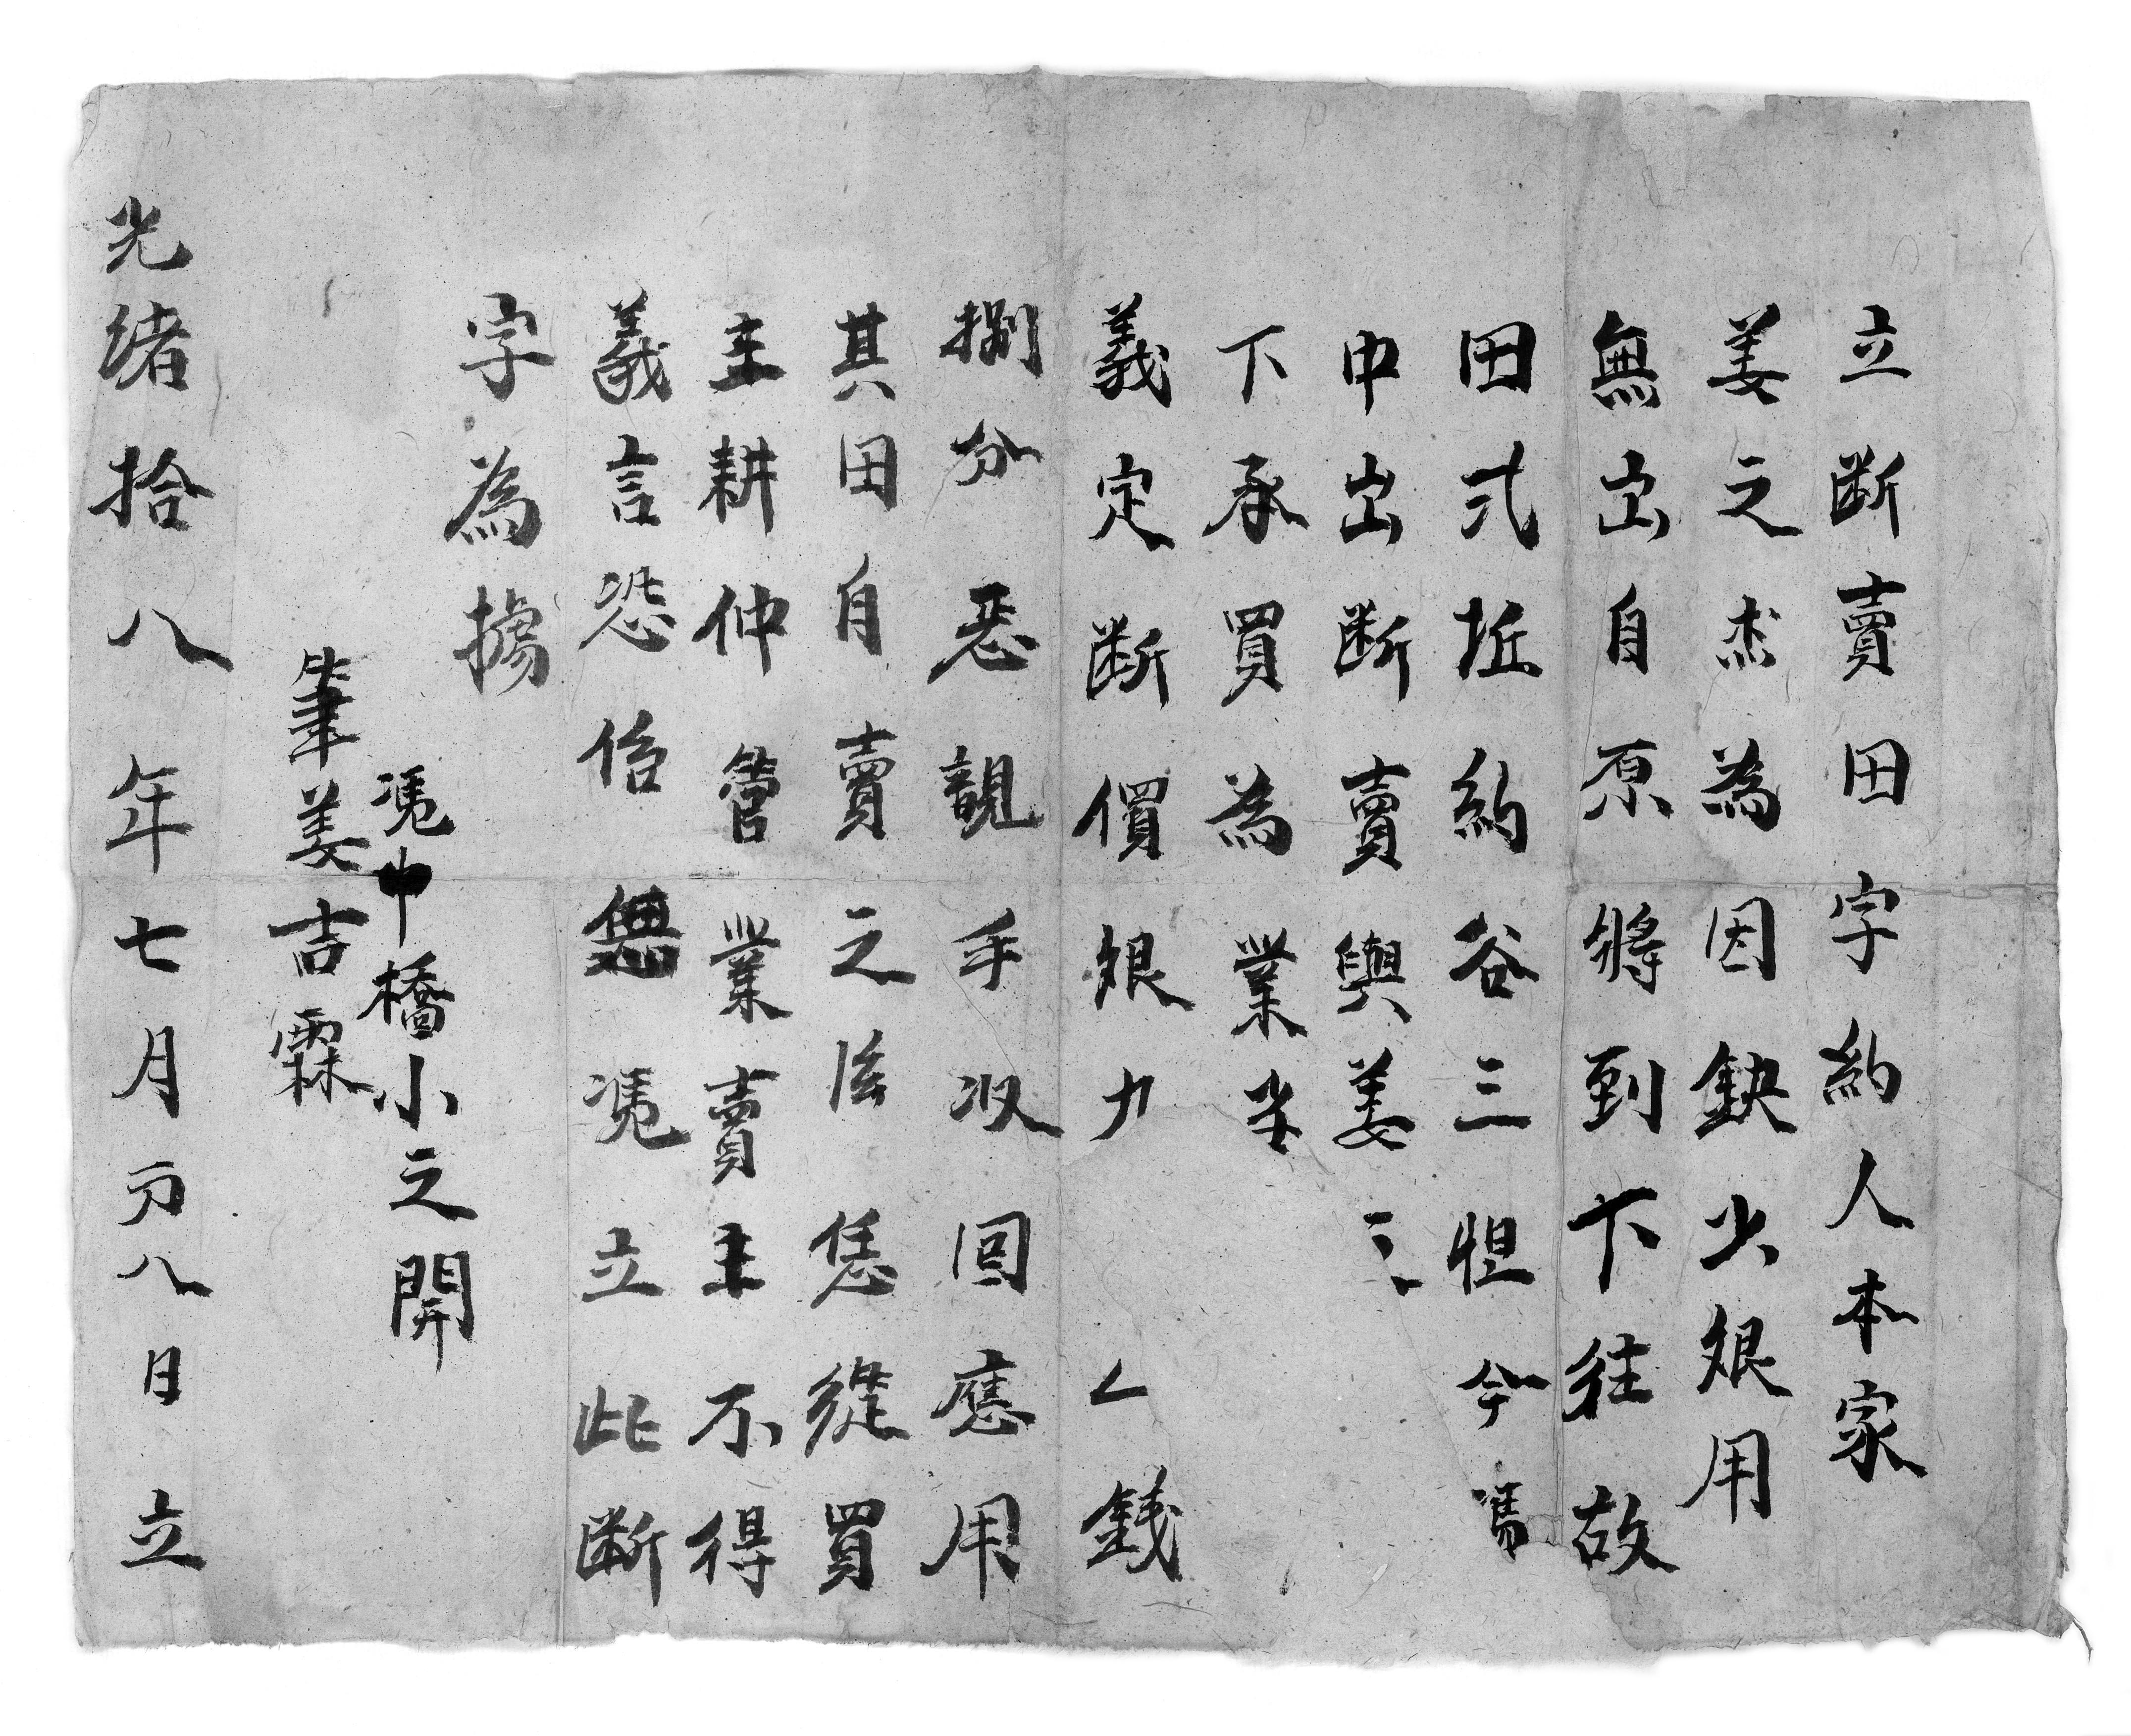 立断賣田字約人本家
姜之杰為因缺少銀用
無出自原將到下往故
田弍坵約谷三担今馮
中出断賣與姜三三
下承買為業當
義定断價銀力 錢
捌分悉親手收回應用
其田自賣之後恁縱買
主耕仲管業賣主不得
義言恐俗無憑立此断
字為據
憑中橋小之開
筆姜吉霖
光緒拾八年七月初八日立